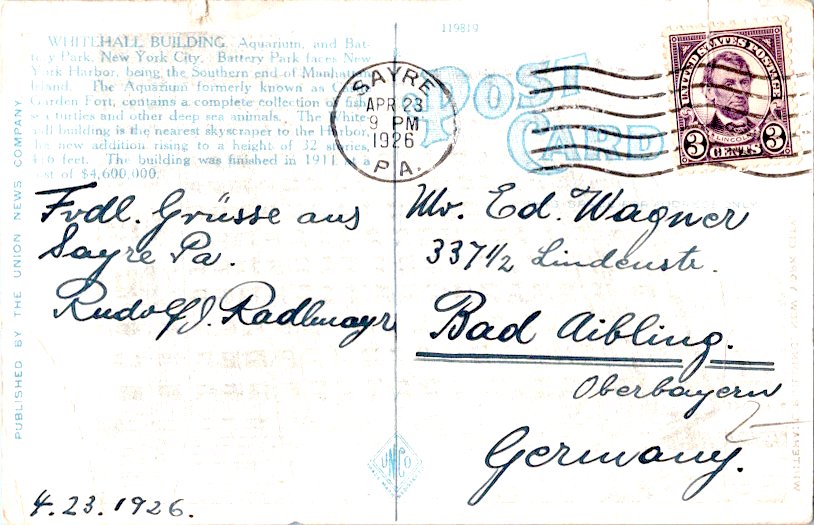 119819
WHITEHALL BUILDING, Aquarium, and Bat-
tery Park, New York City. Battery Park faces New
York Harbor, being the Southern end of Manhattan
Island. The Aquarium formerly known as
Garden Fort, contains a complete collection of fish,
turtles and other deep sea animals. The White-
hall building is the nearest skyscraper to the Harbor,
the new addition rising to a height of 32 stories,
feet. The building was finished in 1911 at a
cost of $4,600,000.
PUBLISHED BY THE UNION NEWS COMPANY
POST
CARD
SAYRE
APR 23
9 PM
1926
PA.
UNITED STATES POSTAGE
LINCOLN
3 CENTS 3
Frdl. Grüsse aus
Sayre Pa.
Rudolf J. Radlmayr
4.23.1926.
Mr. Ed. Wagner
337 1/2 Lindenstr.
Bad Aibling.
Oberbayern
Germany.
UNCO